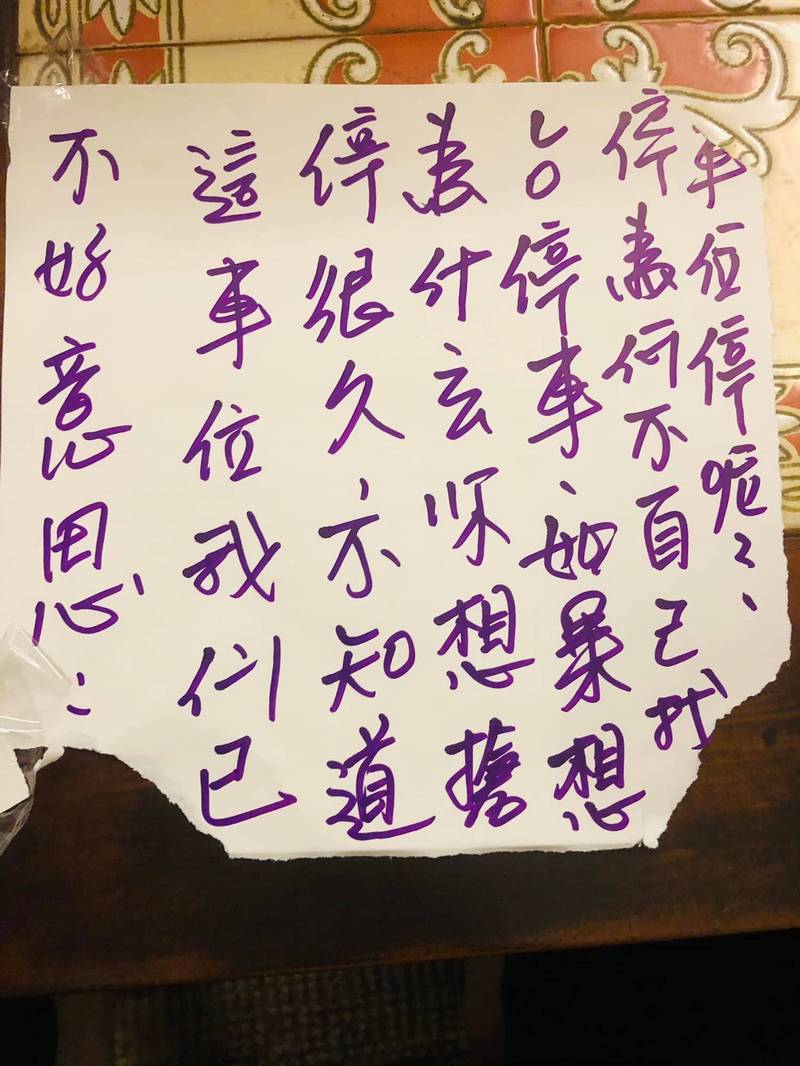 不好意思：
這車位我们已
停很久、不知道
為什么你想搶
停車、如果想
停為何不自己找
車位停呢？、